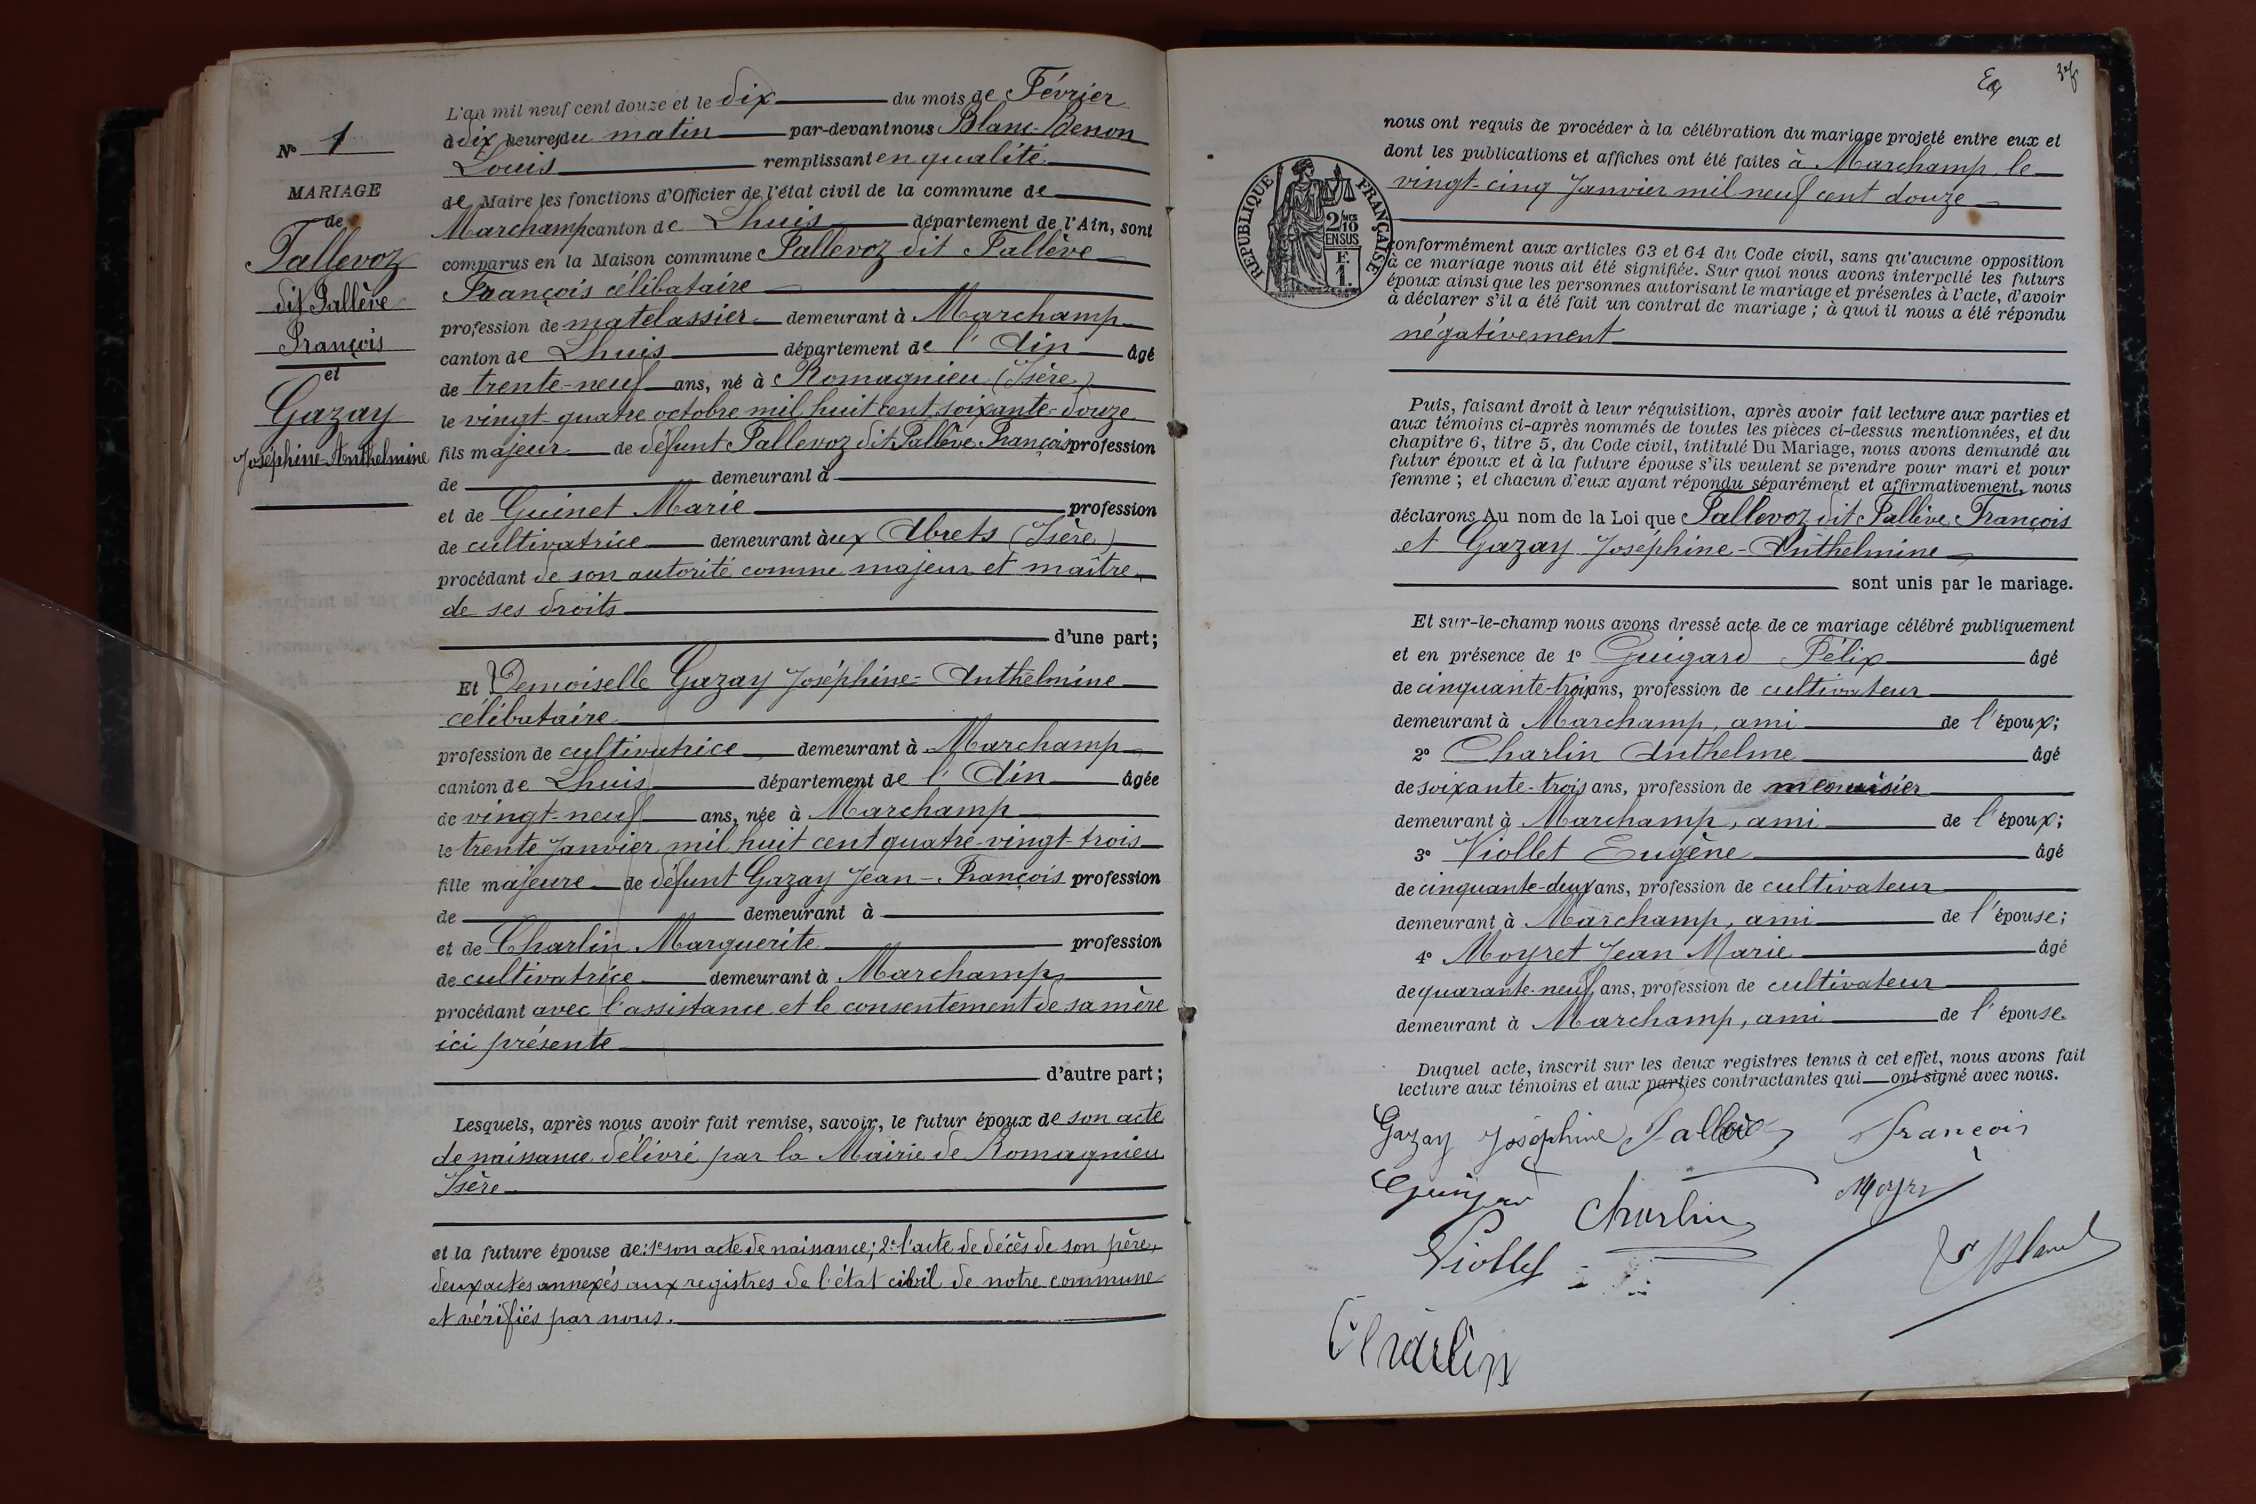 N° 1
MARIAGE
de
Pallevoz
dit Pallève
François
et
Gazay
Joséphine-Anthelmine
L'an mil neuf cent douze et le dix du mois de Février
à dix heures du matin par-devant nous Blanc-Benon
Louis remplissant en qualité
de Maire les fonctions d'Officier de l'état civil de la commune de
Marchamp canton de Lhuis département de l'Ain, sont
comparus en la Maison commune Pallevoz dit Pallève
François célibataire
profession de matelassier demeurant à Marchamp
canton de Lhuis département de l'Ain âgé
de trente-neuf ans, né à Romagnieu (Isère)
le vingt-quatre octobre mil huit cent soixante-douze
fils majeur de défunt Pallevoz dit Pallève François profession
de demeurant à
et de Guinet Marie profession
de cultivatrice demeurant aux Abrets (Isère)
procédant de son autorité comme majeur et maître
de ses droits
d'une part;
Et Demoiselle Gazay Joséphine-Anthelmine
célibataire
profession de cultivatrice demeurant à Marchamp
canton de Lhuis département de l'Ain âgée
de vingt-neuf ans, née à Marchamp
le trente Janvier mil huit cent quatre-vingt-trois
fille majeure de défunt Gazay Jean-François profession
de demeurant à
et de Charlin Marguerite profession
de cultivatrice demeurant à Marchamp
procédant avec l'assistance et le consentement de sa mère
ici présente
d'autre part;
Lesquels, après nous avoir fait remise, savoir, le futur époux de son acte
de naissance délivré par la Mairie de Romagnieu
Isère
et la future épouse de: 1° son acte de naissance; 2° l'acte de décès de son père,
deux actes annexés aux registres de l'état civil de notre commune
et vérifiés par nous.
nous ont requis de procéder à la célébration du mariage projeté entre eux et
dont les publications et affiches ont été faites à Marchamp le
vingt-cinq Janvier mil neuf cent douze
RÉPUBLIQUE FRANÇAISE
2/10
EN SUS
F.
1.
conformément aux articles 63 et 64 du Code civil, sans qu'aucune opposition
à ce mariage nous ait été signifiée. Sur quoi nous avons interpellé les futurs
époux ainsi que les personnes autorisant le mariage et présentes à l'acte, d'avoir
à déclarer s'il a été fait un contrat de mariage; à quoi il nous a été répondu
négativement
Puis, faisant droit à leur réquisition, après avoir fait lecture aux parties et
aux témoins ci-après nommés de toutes les pièces ci-dessus mentionnées, et du
chapitre 6, titre 5, du Code civil, intitulé Du Mariage, nous avons demandé au
futur époux et à la future épouse s'ils veulent se prendre pour mari et pour
femme; et chacun d'eux ayant répondu séparément et affirmativement, nous
déclarons Au nom de la Loi que Pallevoz dit Pallève François
et Gazay Joséphine-Anthelmine
sont unis par le mariage.
Et sur-le-champ nous avons dressé acte de ce mariage célébré publiquement
et en présence de 1° Guigard Félix âgé
de cinquante-trois ans, profession de cultivateur
demeurant à Marchamp, ami de l'époux;
2° Charlin Anthelme âgé
de soixante-trois ans, profession de menuisier
demeurant à Marchamp, ami de l'époux;
3° Viollet Eugène âgé
de cinquante-deux ans, profession de cultivateur
demeurant à Marchamp, ami de l'épouse;
4° Moyret Jean Marie âgé
de quarante-neuf ans, profession de cultivateur
demeurant à Marchamp, ami de l'épouse.
Duquel acte, inscrit sur les deux registres tenus à cet effet, nous avons fait
lecture aux témoins et aux parties contractantes qui ont signé avec nous.
Gazay Joséphine François
Guigard Charlin
Viollet
Charlin